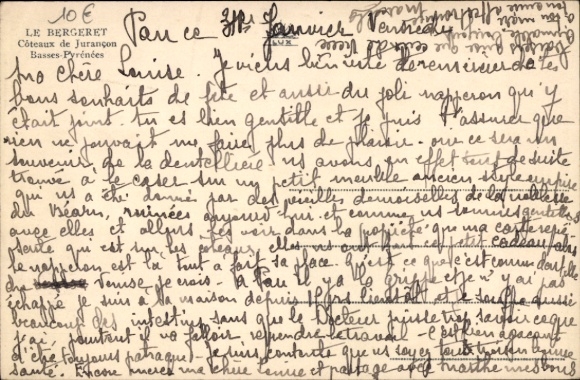 10€
LE BERGERET
Côteaux de Jurançon
Basses-Pyrénées
LUX
Pau ce Janvier Vendredi
Ma chère Louise. Je viens bien vite te remercier de tes
bons souhaits de fête et aussi du joli napperon qui y
était joint tu es bien gentille et je puis t'assurer que
rien ne pouvait me faire plus de plaisir. que ce sera un
souvenir de la dentellière ns avons en effet tout de suite
trouvé à le caser sur un petit meuble ancien style empire
qui ns a été donné par des vieilles demoiselles de la noblesse
du Béarn, ruinées aujourd'hui et comme ns sommes gentils
avec elles et allons les voir dans la propriété que ma carte repré
sente qui est sur les côteaux elles ns ont fait ce petit cadeau alors
le napperon est là tout à fait sa place. Qu'est ce que c'est comme dentelle
du suisse je crois - A Pau il y a la grippe et je n'y ai pas
échappé je suis à la maison depuis jours bientôt et je souffre aussi
beaucoup des intestins sans que le docteur puisse trop savoir ce que
j'ai pourtant il va falloir reprendre le travail - c'est bien agaçant
d'être toujours patraque - je suis contente que vs soyez tous trois en bonne
santé. Encore merci ma chère Louise et partage avec Marthe mes bons